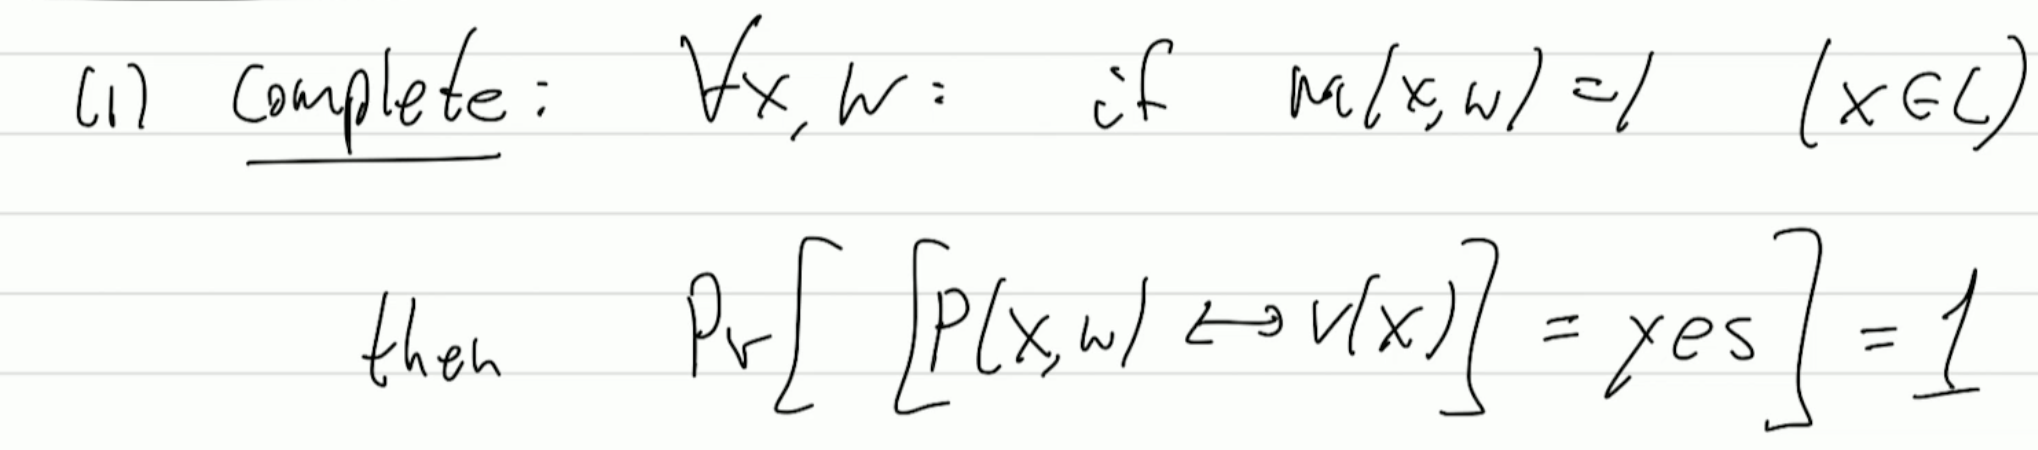 (1) Complete: ∀x, w: if M(x,w)=1 (x∈L)
then Pr[ [P(x,w) ↔ V(x)] = yes ] = 1